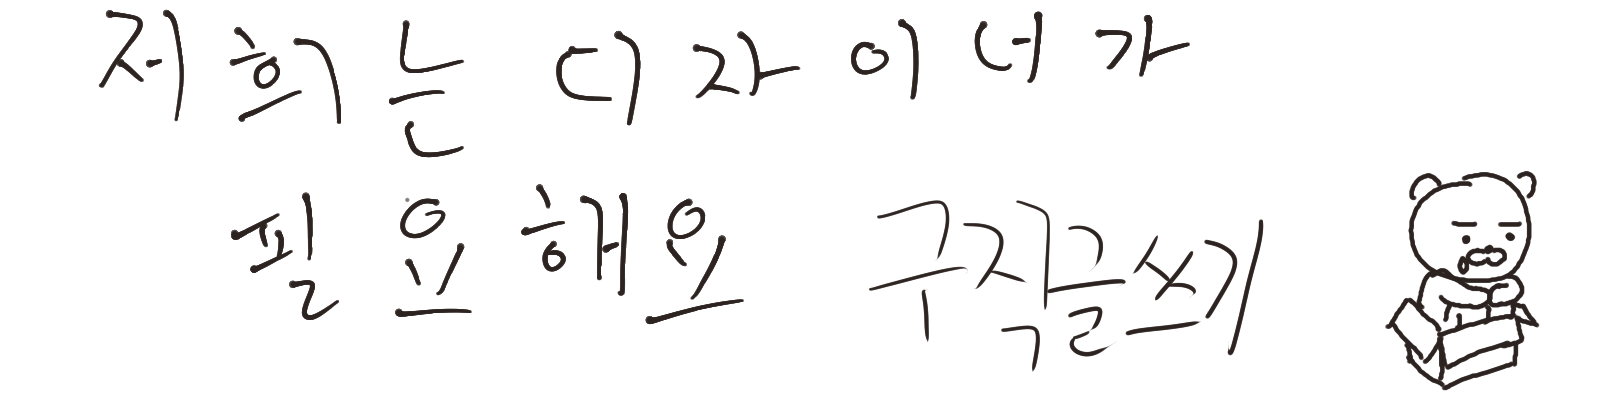 저희는 디자이너가
필요해요 구직글쓰기